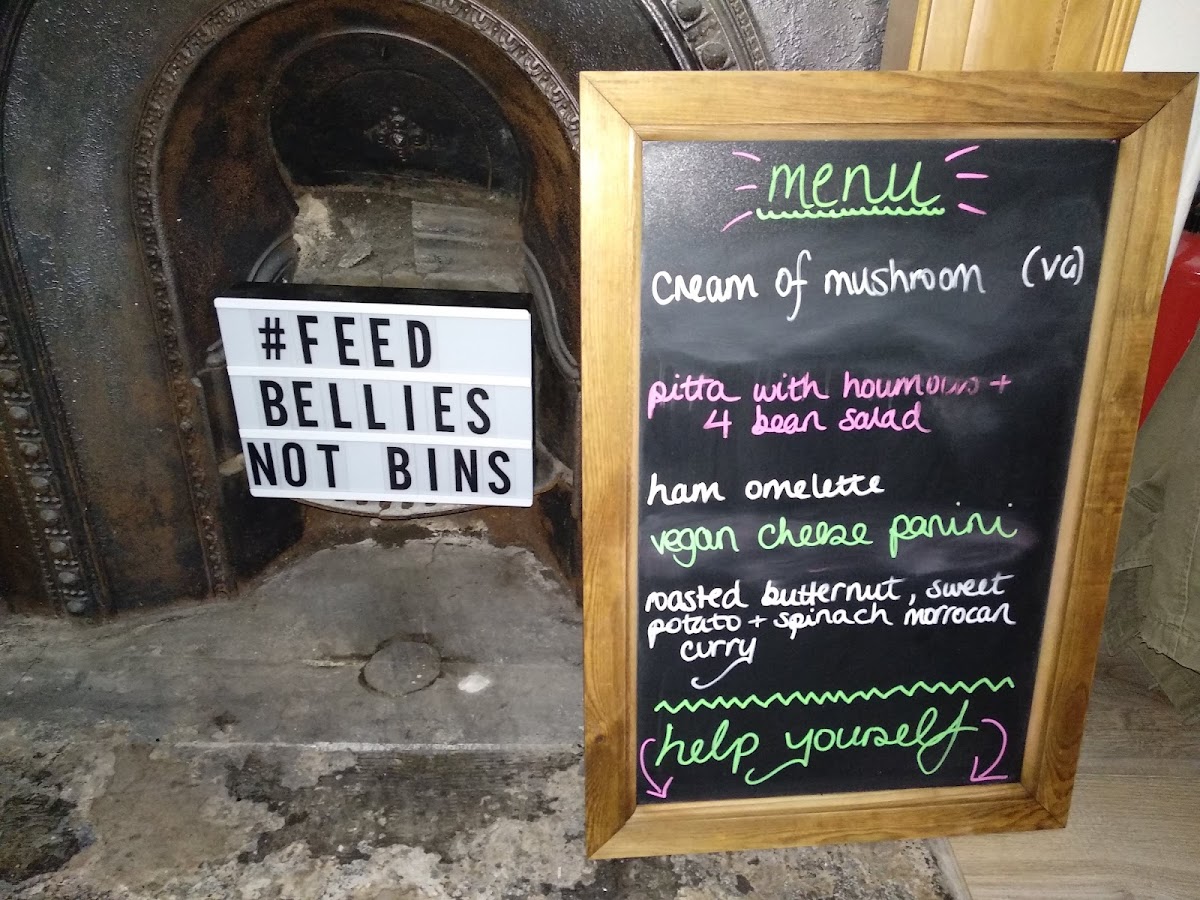 #FEED
BELLIES
NOT BINS
menu
cream of mushroom (VG)
pitta with houmous +
4 bean salad
ham omelette
vegan cheese panini
roasted butternut, sweet
potato + spinach morrocan
curry
help yourself